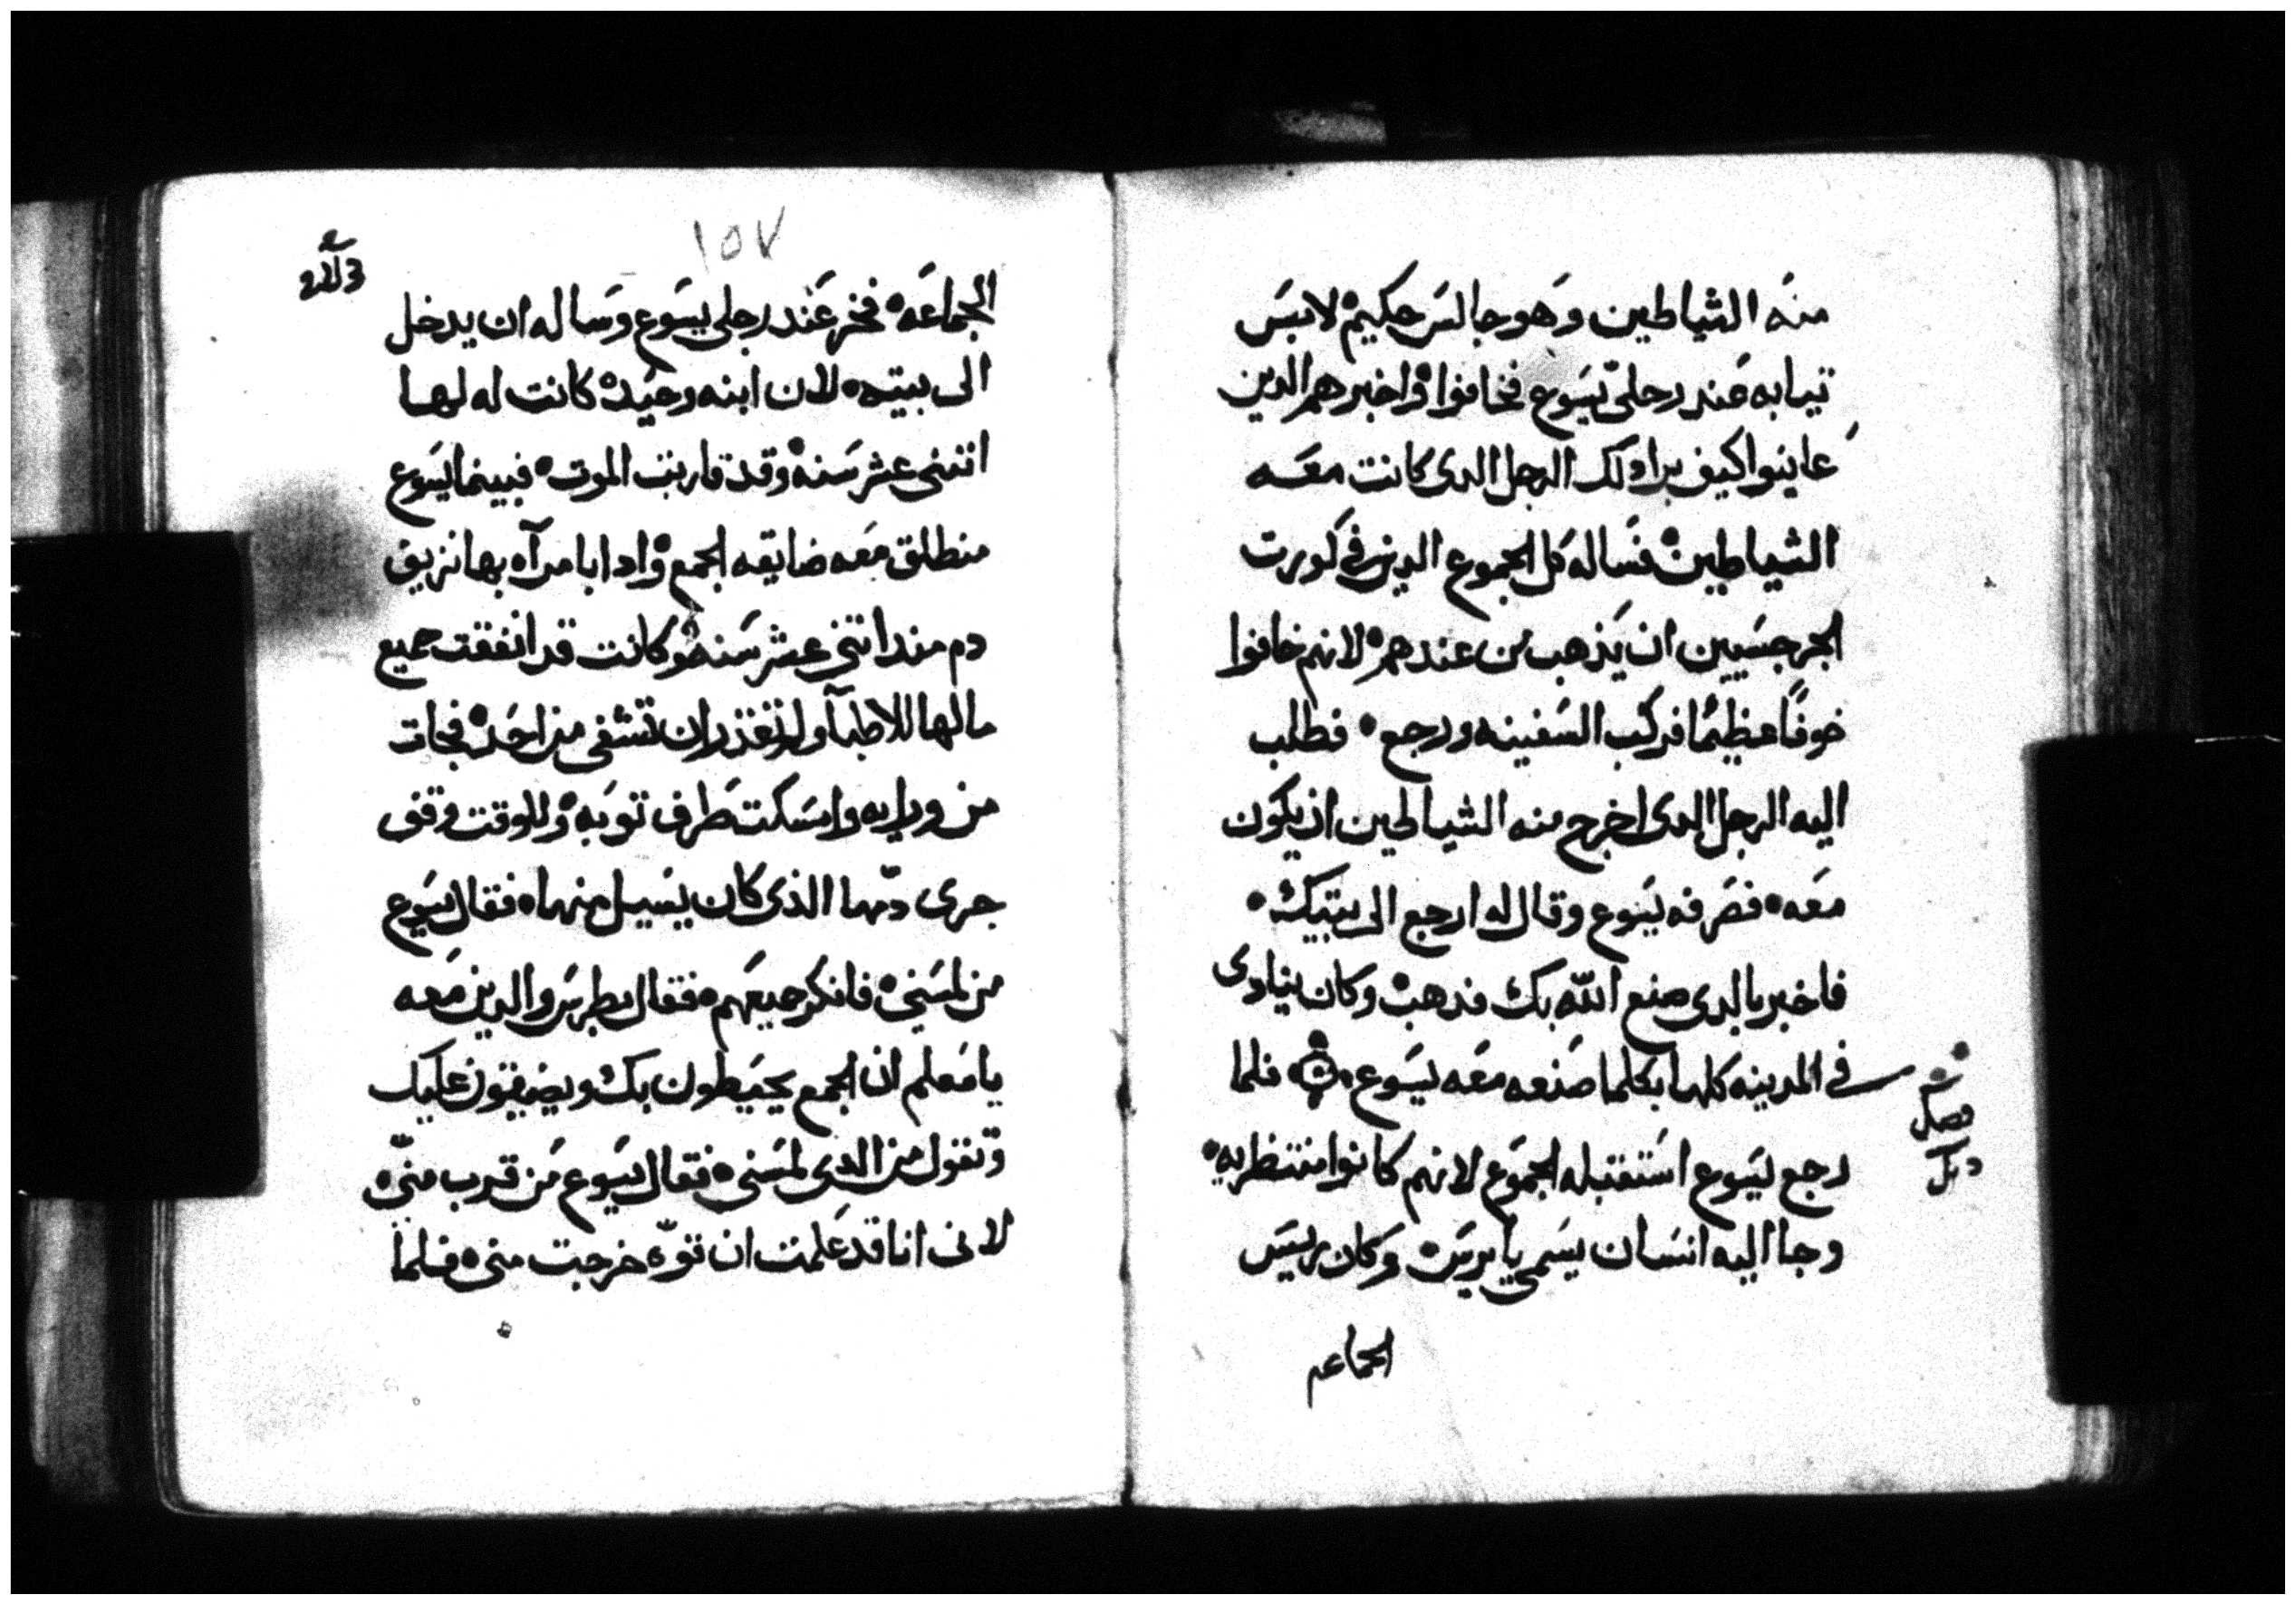 منه الشياطين وهو جالس حكيم لابس
تيابه عند رجلي يسوع فخافوا واخبرهم الدين
عاينوا كيف برا دلك الرجل الدى كانت معه
الشياطين فساله كل الجموع الدين في كورت
الجرجسيين ان يذهب من عندهم لانهم خافوا
خوفًا عظيمًا فركب السفينه ورجع فطلب
اليه الرجل الدى اخرج منه الشياطين ان يكون
معه فصرفه يسوع وقال له ارجع الى بيتك
فاخبر بالدى صنع الله بك فدهب وكان ينادى
في المدينه كلها بكلما صنعه معه يسوع فلما
فصل
رجع يسوع استقبله الجموع لانهم كانوا منتظريه
وجا اليه انسان يسمى يايرس وكان رييس
الجماعه
١٥٧
الجماعه فخر عند رجلي يسوع وساله ان يدخل
الى بيته لان ابنه وحيده كانت له لها
اتنتى عشر سنه وقد قاربت الموت فبينما يسوع
منطلق معه ضايقه الجمع وادا بامرآه بها نزيف
دم مند اتنتى عشر سنه وكانت قد انفقت جميع
مالها للاطبآ ولم تقدر ان تشفى من احد فجات
من ورايه وامسكت طرف توبه وللوقت وقف
جرى دمها الذى كان يسيل منها فقال يسوع
من لمسنى فانكر جميعهم فقال بطرس والدين معه
يا معلم ان الجمع يحيطون بك ويضيقون عليك
وتقول من الدى لمسنى فقال يسوع من قرب منى
لانى انا قد علمت ان قوه خرجت منى فلما